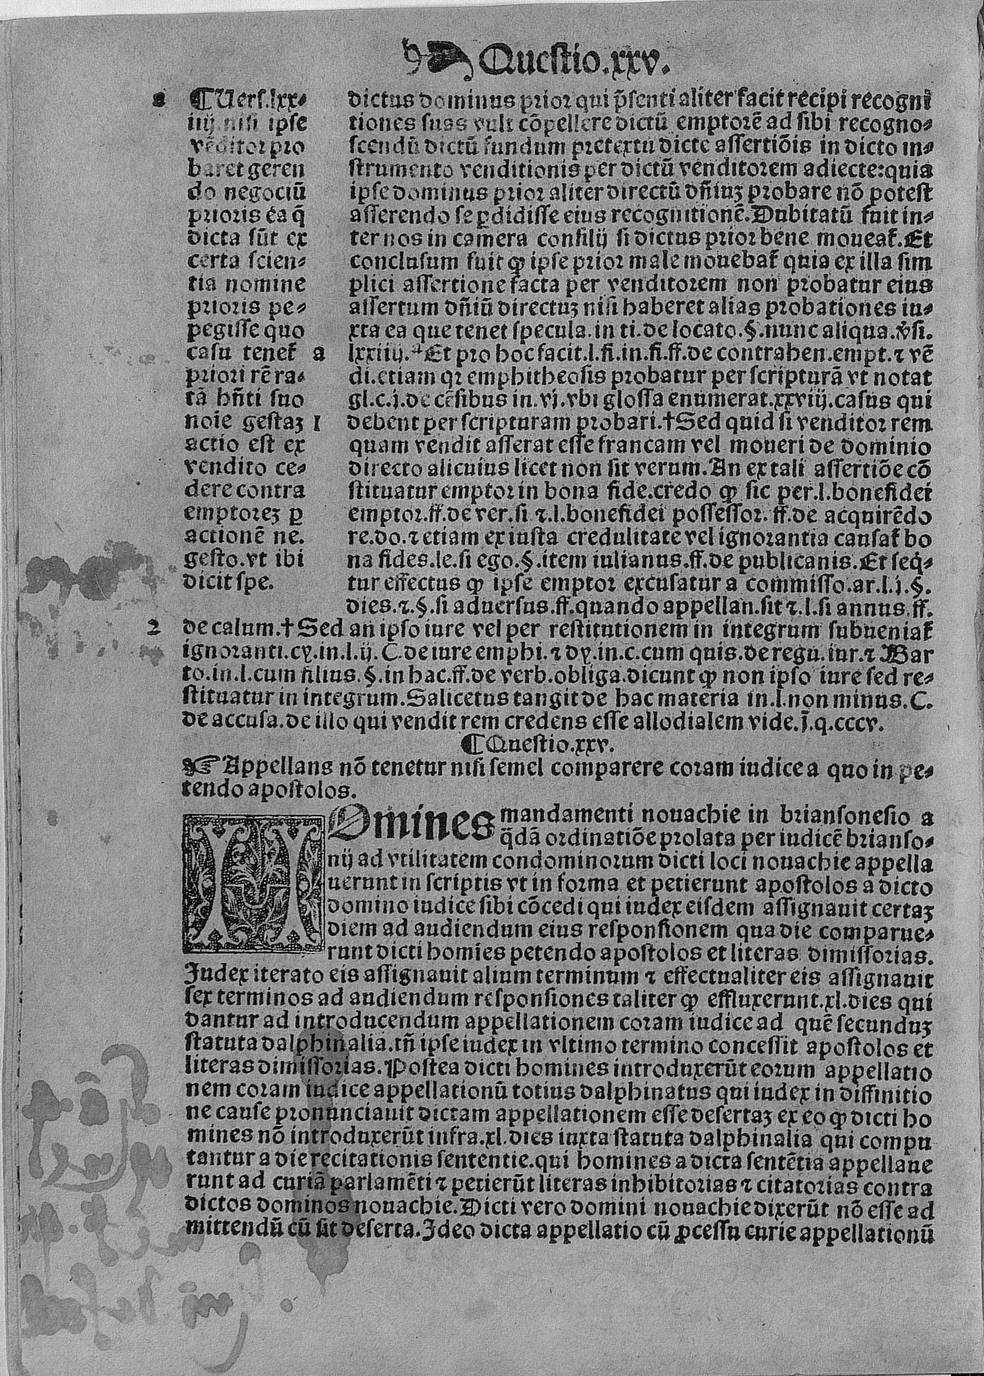 Questio.xxv.
a ¶Uers.lxx-
iiij nisi ipse
vēditor pro
baret geren
do negociū
prioris ea q̄
dicta sūt ex
certa scien-
tia nomine
prioris pe-
pegisse quo
casu tenet̄
priori rē ra-
tā hn̄ti suo
noīe gestaz
actio est ex
vendito ce-
dere contra
emptorez ꝑ
actionē ne.
gesto.vt ibi
dicit spe.
dictus dominus prior qui p̄senti aliter facit recipi recogni
tiones suas vult cōpellere dictū emptorē ad sibi recogno-
scendū dictū fundum pretextu dicte assertiōis in dicto in-
strumento venditionis per dictū venditorem adiecte:quia
ipse dominus prior aliter directū dn̄iuz probare nō potest
asserendo se ꝑdidisse eius recognitionē.Dubitatū fuit in-
ter nos in camera consilij si dictus prior bene moueat̄.Et
conclusum fuit ꝙ ipse prior male mouebat̄ quia ex illa sim
plici assertione facta per venditorem non probatur eius
assertum dn̄iū directuz nisi haberet alias probationes iu-
xta ea que tenet specula.in ti.de locato.§.nunc aliqua.v̄si.
a lxxiiij.ᵃ Et pro hoc facit.l.fi.in.fi.ff.de contrahen.empt.⁊ vē
di.etiam qr emphitheosis probatur per scripturā vt notat
gl.c.j.de cēsibus in.vj.vbi glossa enumerat.xxviij.casus qui
1 debent per scripturam probari.†Sed quid si venditor rem
quam vendit asserat esse francam vel moueri de dominio
directo alicuius licet non sit verum.An ex tali assertiōe cō
stituatur emptor in bona fide.credo ꝙ sic per.l.bonefidei
emptor.ff.de ver.si ⁊.l.bonefidei possessor.ff.de acquirēdo
re.do.⁊ etiam ex iusta credulitate vel ignorantia causat̄ bo
na fides.le.si ego.§.item iulianus.ff.de publicanis.Et seq̄-
tur effectus ꝙ ipse emptor excusatur a commisso.ar.l.j.§.
dies.⁊.§.si aduersus.ff.quando appellan.sit ⁊.l.si annus.ff.
2 de calum.†Sed an ipso iure vel per restitutionem in integrum subueniat̄
ignoranti.cy.in.l.ij.C.de iure emphi.⁊ dy.in.c.cum quis.de regu.iur.⁊ Bar
to.in.l.cum filius.§.in hac.ff.de verb.obliga.dicunt ꝙ non ipso iure sed re-
stituatur in integrum.Salicetus tangit de hac materia in.l.non minus.C.
de accusa.de illo qui vendit rem credens esse allodialem vide.j.q.cccv.
¶Questio.xxv.
☞Appellans nō tenetur nisi semel comparere coram iudice a quo in pe-
tendo apostolos.
HOmines mandamenti nouachie in briansonesio a
q̄dā ordinatiōe prolata per iudicē brianso-
nij ad vtilitatem condominorum dicti loci nouachie appella
uerunt in scriptis vt in forma et petierunt apostolos a dicto
domino iudice sibi cōcedi qui iudex eisdem assignauit certaz
diem ad audiendum eius responsionem qua die comparue-
runt dicti homīes petendo apostolos et literas dimissorias.
Iudex iterato eis assignauit alium terminum ⁊ effectualiter eis assignauit
sex terminos ad audiendum responsiones taliter ꝙ effluxerunt.xl.dies qui
dantur ad introducendum appellationem coram iudice ad quē secunduz
statuta dalphinalia.tn̄ ipse iudex in vltimo termino concessit apostolos et
literas dimissorias.Postea dicti homines introduxerūt eorum appellatio
nem coram iudice appellationū totius dalphinatus qui iudex in diffinitio
ne cause pronunciauit dictam appellationem esse desertaz ex eo ꝙ dicti ho
mines nō introduxerūt infra.xl.dies iuxta statuta dalphinalia qui compu
tantur a die recitationis sententie.qui homines a dicta sentētia appellaue
runt ad curiā parlamēti ⁊ petierūt literas inhibitorias ⁊ citatorias contra
dictos dominos nouachie.Dicti vero domini nouachie dixerūt nō esse ad
mittendū cū sit deserta.Ideo dicta appellatio cū ꝓcessu curie appellationū